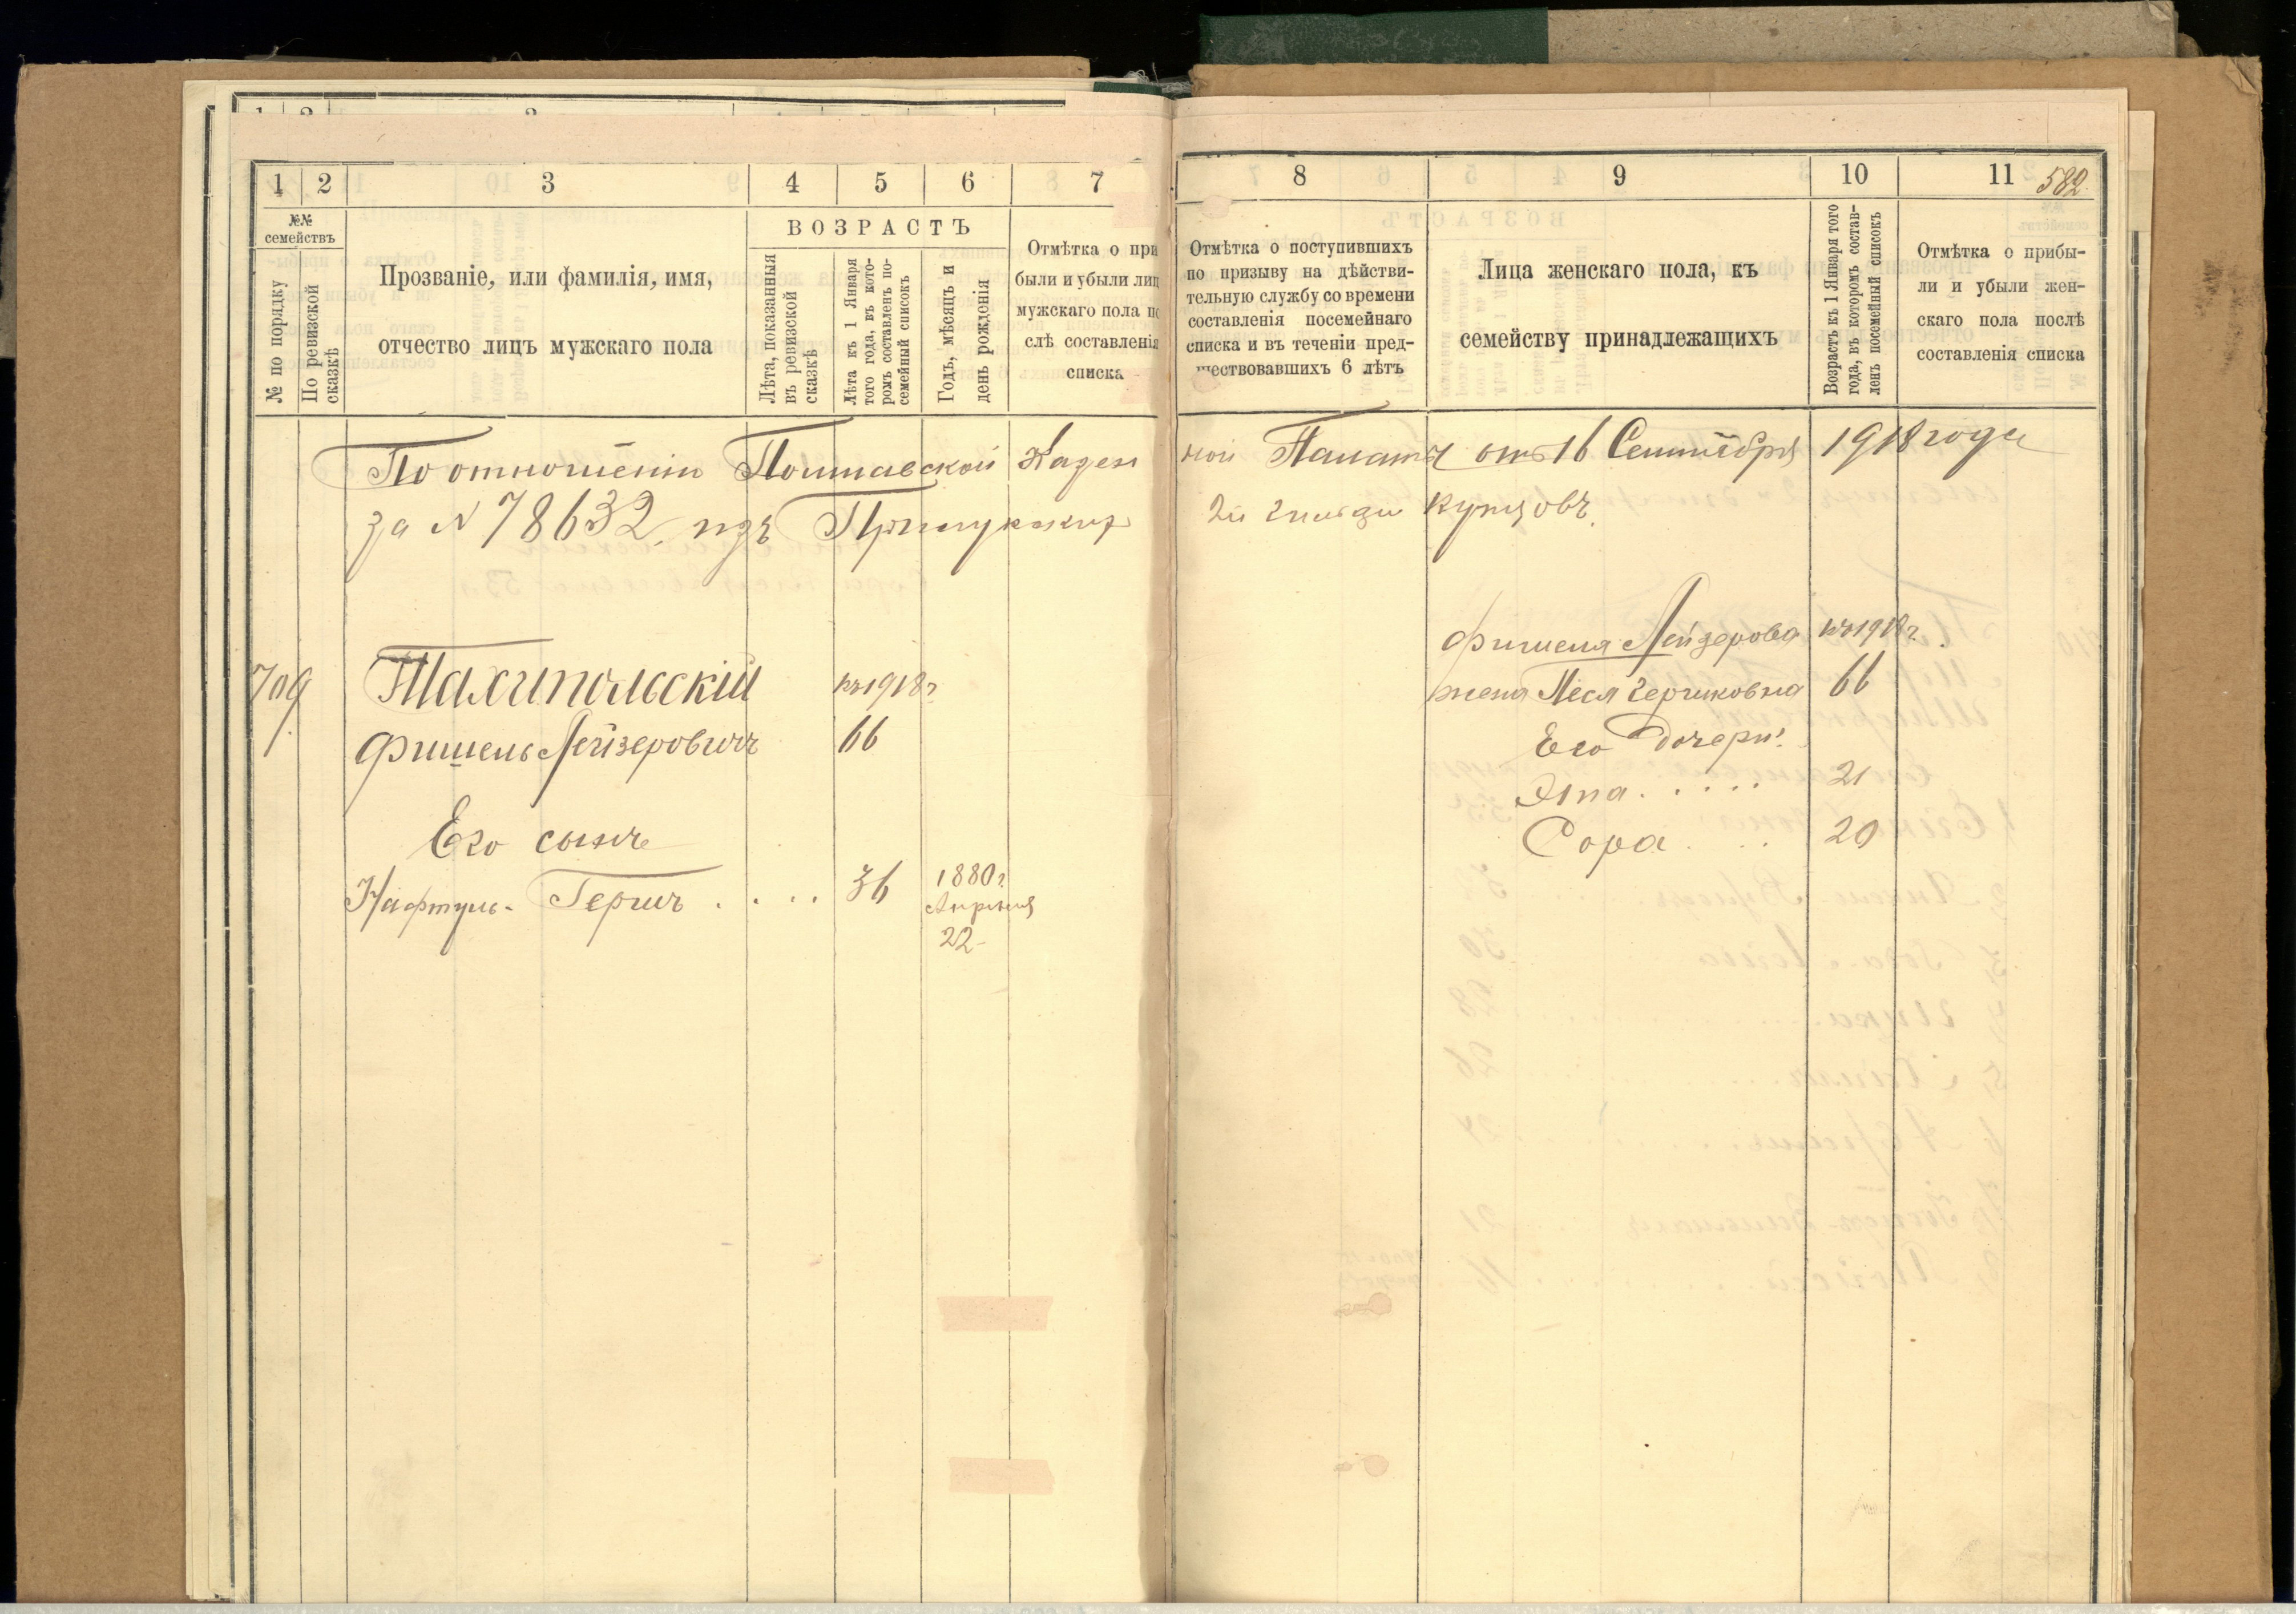 1 2 3 4 5 6 7
№№ семействъ
№ по порядку
По ревизской сказкѣ
Прозваніе, или фамилія, имя,
отчество лицъ мужскаго пола
ВОЗРАСТЪ
Лѣта, показанныя
въ ревизской
сказкѣ
Лѣта къ 1 Января
того года, въ кото-
ромъ составленъ по-
семейный списокъ
Годъ, мѣсяцъ и
день рожденія
Отмѣтка о при
были и убыли лиц
мужскаго пола по
слѣ составленія
списка
8 9 10 11
582
Отмѣтка о поступившихъ
по призыву на дѣйстви-
тельную службу со времени
составленія посемейнаго
списка и въ теченіи пред-
шествовавшихъ 6 лѣтъ
Лица женскаго пола, къ
семейству принадлежащихъ
Возрастъ къ 1 Января того
года, въ которомъ состав-
ленъ посемейный списокъ
Отмѣтка о прибы-
ли и убыли жен-
скаго пола послѣ
составленія списка
По отношенію Полтавской Казенной Палаты отъ 16 Сентября 1918 года
за N 78632 изъ 2й гильдіи купцовъ.
709
къ 1918 г
Фишель Лейзеровичъ 66
Его сынъ
Нафтуль-Гершъ .... 36 1880 г.
Апрѣля
22
Фишеля Лейзерова къ 1918 г.
жена Песя Гершковна 66
Его дочери:
Эта..... 21
Сора... 20